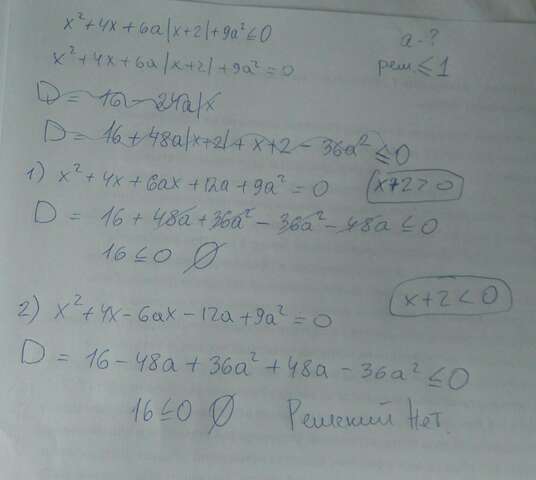 x² + 4x + 6a|x+2| + 9a² ≤ 0
a - ?
x² + 4x + 6a|x+2| + 9a² = 0
реш. ≤ 1
D = 16 - 24a|x
D = 16 + 48a|x+2| + x+2 - 36a² ≤ 0
1) x² + 4x + 6ax + 12a + 9a² = 0
x+2 > 0
D = 16 + 48a + 36a² - 36a² - 48a ≤ 0
16 ≤ 0 ∅
x+2 < 0
2) x² + 4x - 6ax - 12a + 9a² = 0
D = 16 - 48a + 36a² + 48a - 36a² ≤ 0
16 ≤ 0 ∅ Решений Нет.